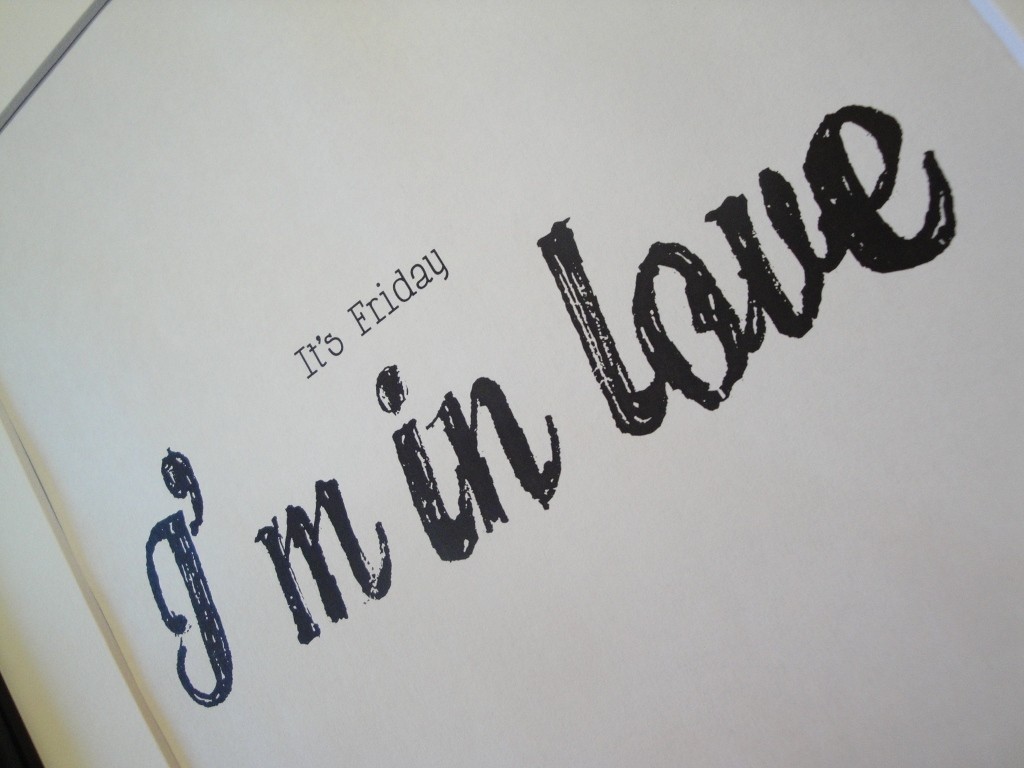 It's Friday
I'm in love